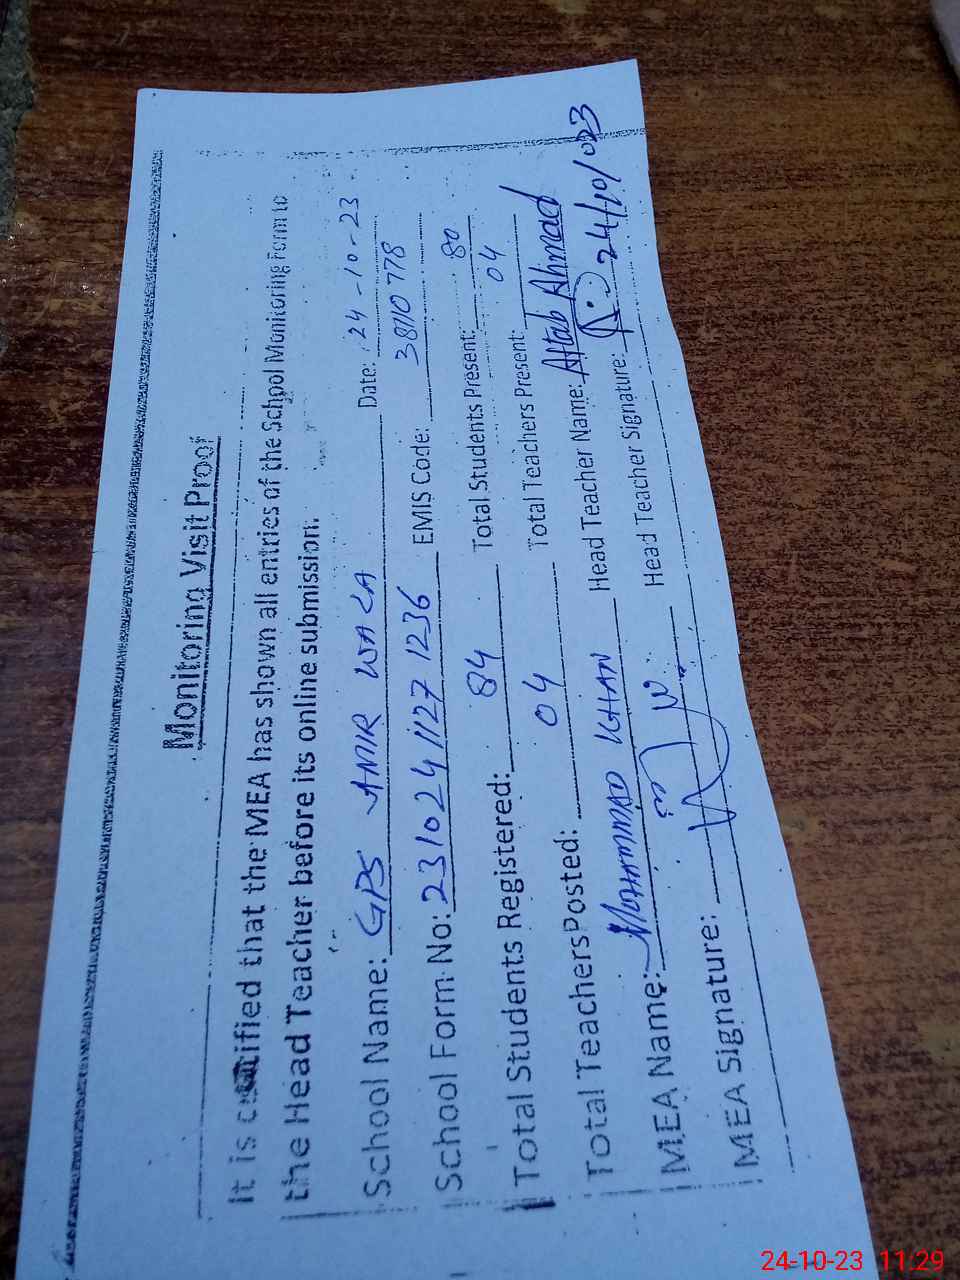 Monitoring Visit Proof
It is certified that the MEA has shown all entries of the School Monitoring Form to
the Head Teacher before its online submission.
School Name: GPS AMIR WALA Date: 24-10-23
School Form No: 231024 1127 1236 EMIS Code: 38110778
Total Students Registered: 84 Total Students Present: 80
Total Teachers Posted: 04 Total Teachers Present: 04
MEA Name: MOHAMMAD KHAN Head Teacher Name: Aftab Ahmad
MEA Signature: Head Teacher Signature: 24/10/023
24-10-23 11:29